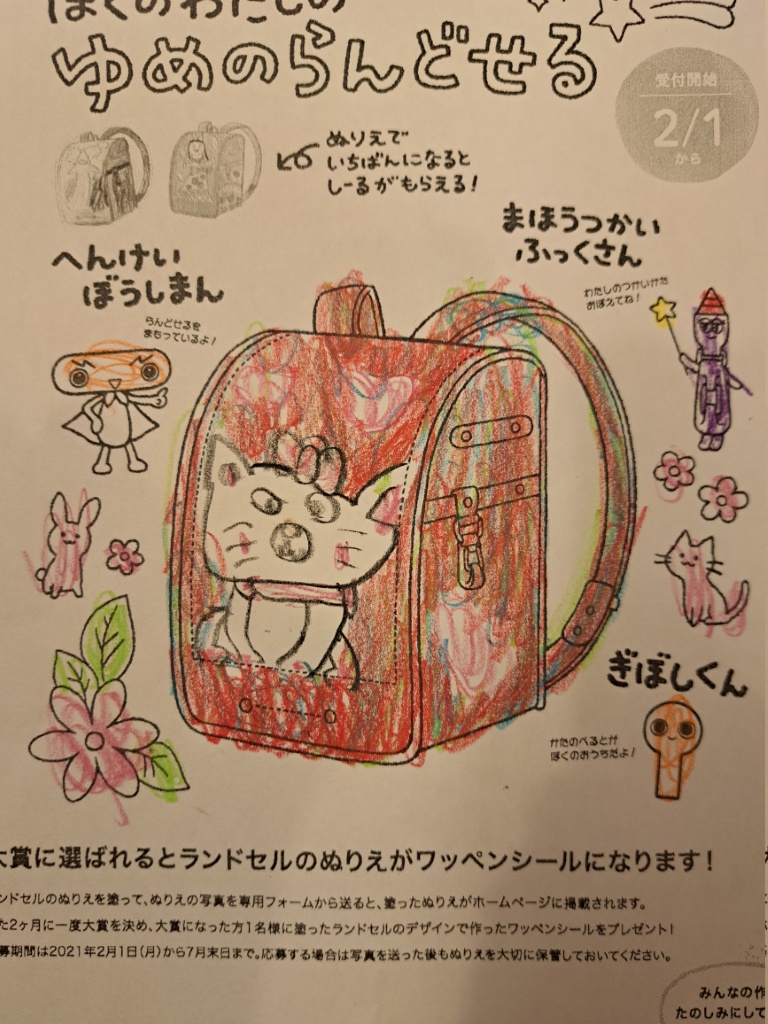 ぼくのわたしの
ゆめのらんどせる
受付開始
2/1
から
ぬりえで
いちばんになると
しーるがもらえる!
まほうつかい
ふっくさん
わたしのつかいかた
おぼえてね!
へんけい
ぼうしまん
らんどせるを
まもっているよ!
ぎぼしくん
かたのべるとが
ぼくのおうちだよ!
大賞に選ばれるとランドセルのぬりえがワッペンシールになります!
ンドセルのぬりえを塗って、ぬりえの写真を専用フォームから送ると、塗ったぬりえがホームページに掲載されます。
た2ヶ月に一度大賞を決め、大賞になった方1名様に塗ったランドセルのデザインで作ったワッペンシールをプレゼント!
募期間は2021年2月1日(月)から7月末日まで。応募する場合は写真を送った後もぬりえを大切に保管しておいてください。
みんなの作
たのしみにして